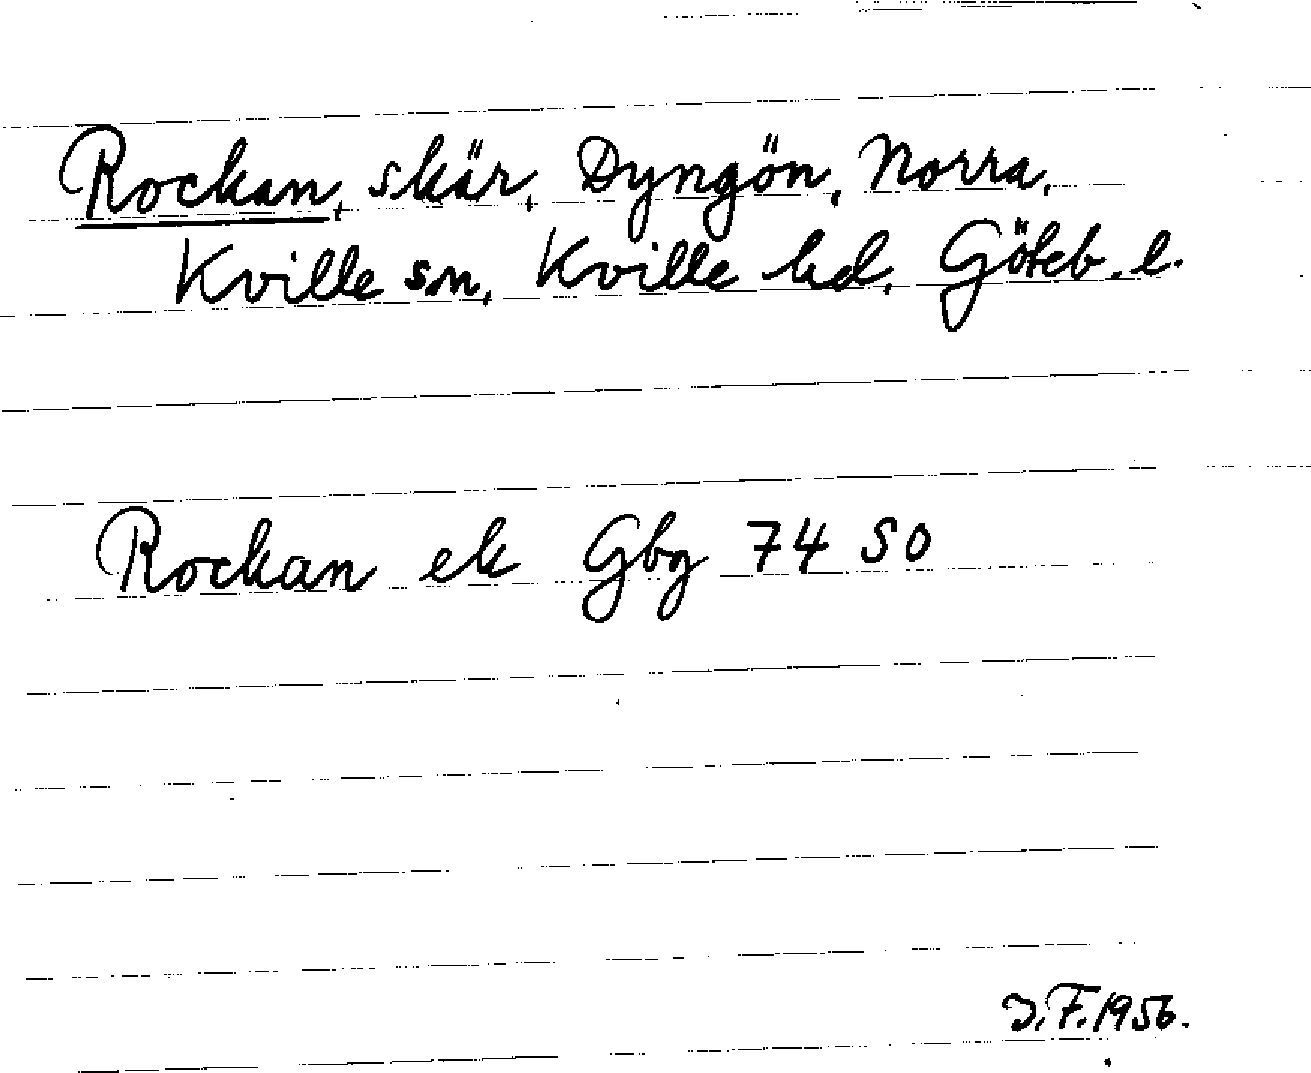 Rockan, skär, Dyngön, Norra,
Kville sn, Kville hd, Göteb. l.
Rockan ek Gbg 74 SO
J.F. 1956.